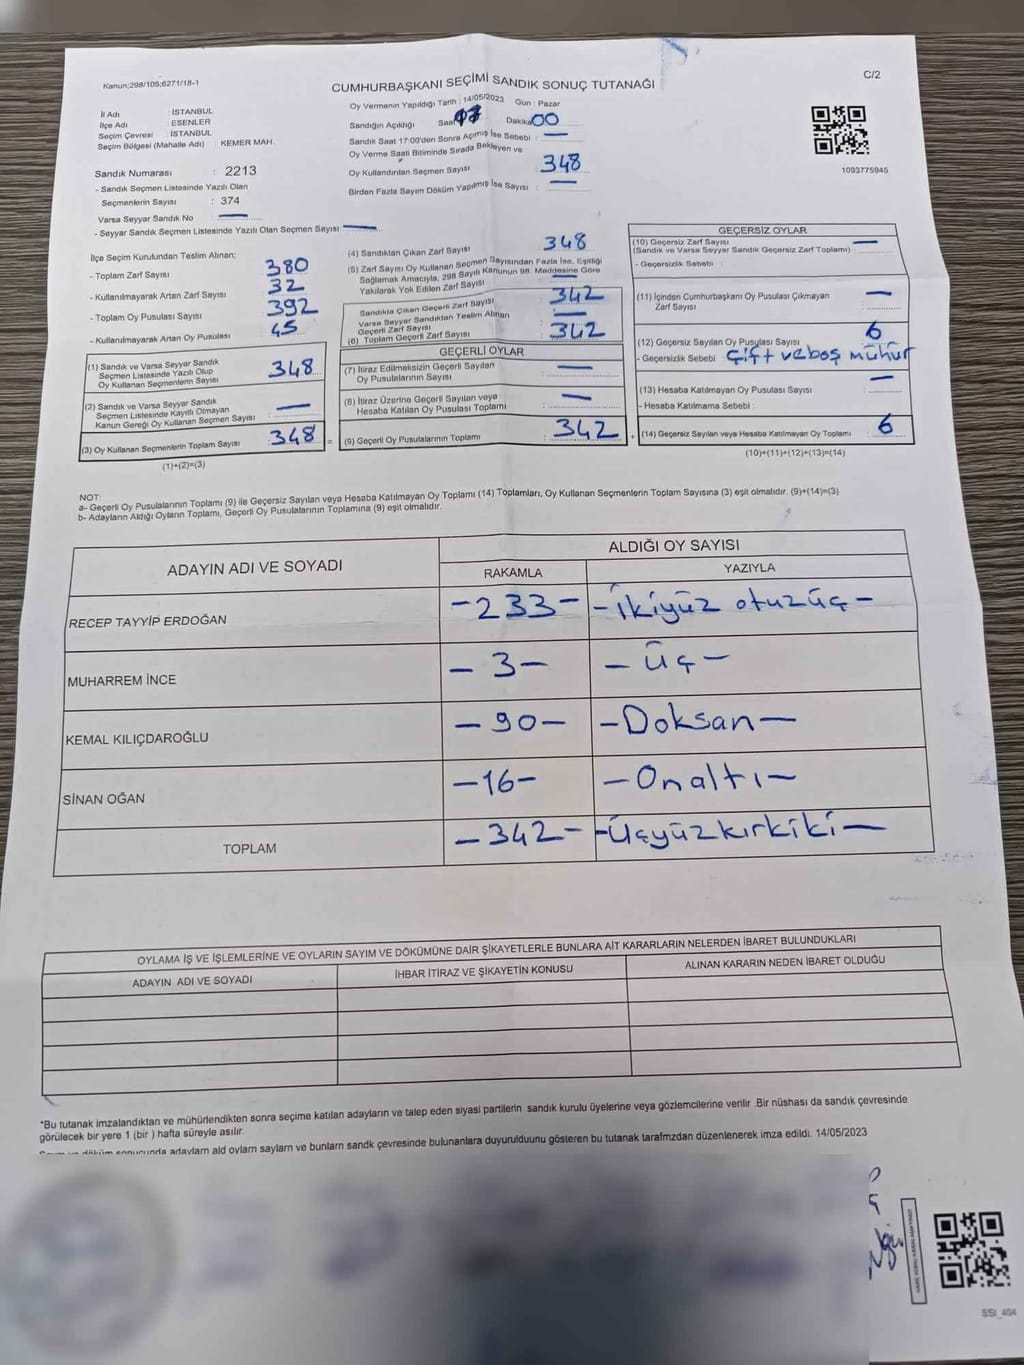 Kanun;298/105;6271/18-1
CUMHURBAŞKANI SEÇİMİ SANDIK SONUÇ TUTANAĞI
C/2
İl Adı : İSTANBUL
İlçe Adı : ESENLER
Seçim Çevresi : İSTANBUL
Seçim Bölgesi (Mahalle Adı) : KEMER MAH.
Sandık Numarası : 2213
- Sandık Seçmen Listesinde Yazılı Olan
Seçmenlerin Sayısı : 374
Varsa Seyyar Sandık No : —
- Seyyar Sandık Seçmen Listesinde Yazılı Olan Seçmen Sayısı : —
Oy Vermenin Yapıldığı Tarih : 14/05/2023 Gün : Pazar
Sandığın Açıldığı Saat Dakika 00
Sandık Saat 17:00'den Sonra Açımış İse Sebebi : —
Oy Verme Saati Bitiminde Sırada Bekleyen ve
Oy Kullandırılan Seçmen Sayısı : 348
Birden Fazla Sayım Döküm Yapılmış İse Sayısı : —
1093775945
İlçe Seçim Kurulundan Teslim Alınan;
- Toplam Zarf Sayısı : 380
- Kullanılmayarak Artan Zarf Sayısı : 32
- Toplam Oy Pusulası Sayısı : 392
- Kullanılmayarak Artan Oy Pusulası : 45
(1) Sandık ve Varsa Seyyar Sandık
Seçmen Listesinde Yazılı Olup
Oy Kullanan Seçmenlerin Sayısı : 348
(2) Sandık ve Varsa Seyyar Sandık
Seçmen Listesinde Kayıtlı Olmayan
Kanun Gereği Oy Kullanan Seçmen Sayısı : —
(3) Oy Kullanan Seçmenlerin Toplam Sayısı : 348 =
(1)+(2)=(3)
(4) Sandıktan Çıkan Zarf Sayısı : 348
(5) Zarf Sayısı Oy Kullanan Seçmen Sayısından Fazla İse, Eşitliği
Sağlamak Amacıyla, 298 Sayılı Kanunun 98. Maddesine Göre
Yakılarak Yok Edilen Zarf Sayısı : —
Sandıkta Çıkan Geçerli Zarf Sayısı : 342
Varsa Seyyar Sandıktan Teslim Alınan
Geçerli Zarf Sayısı : —
(6) Toplam Geçerli Zarf Sayısı : 342
GEÇERLİ OYLAR
(7) İtiraz Edilmeksizin Geçerli Sayılan
Oy Pusulalarının Sayısı : —
(8) İtiraz Üzerine Geçerli Sayılan veya
Hesaba Katılan Oy Pusulası Toplamı : —
(9) Geçerli Oy Pusulalarının Toplamı : 342 +
GEÇERSİZ OYLAR
(10) Geçersiz Zarf Sayısı
(Sandık ve Varsa Seyyar Sandık Geçersiz Zarf Toplamı) : —
- Geçersizlik Sebebi :
(11) İçinden Cumhurbaşkanı Oy Pusulası Çıkmayan
Zarf Sayısı : —
(12) Geçersiz Sayılan Oy Pusulası Sayısı : 6
- Geçersizlik Sebebi : Çift ve boş mühür
(13) Hesaba Katılmayan Oy Pusulası Sayısı : —
- Hesaba Katılmama Sebebi :
(14) Geçersiz Sayılan veya Hesaba Katılmayan Oy Toplamı : 6
(10)+(11)+(12)+(13)=(14)
NOT:
a- Geçerli Oy Pusulalarının Toplamı (9) ile Geçersiz Sayılan veya Hesaba Katılmayan Oy Toplamı (14) Toplamları, Oy Kullanan Seçmenlerin Toplam Sayısına (3) eşit olmalıdır. (9)+(14)=(3)
b- Adayların Aldığı Oyların Toplamı, Geçerli Oy Pusulalarının Toplamına (9) eşit olmalıdır.
ADAYIN ADI VE SOYADI
ALDIĞI OY SAYISI
RAKAMLA YAZIYLA
RECEP TAYYİP ERDOĞAN -233- -İkiyüz otuzüç-
MUHARREM İNCE -3- -Üç-
KEMAL KILIÇDAROĞLU -90- -Doksan-
SİNAN OĞAN -16- -Onaltı-
TOPLAM -342- -Üçyüzkırkiki-
OYLAMA İŞ VE İŞLEMLERİNE VE OYLARIN SAYIM VE DÖKÜMÜNE DAİR ŞİKAYETLERLE BUNLARA AİT KARARLARIN NELERDEN İBARET BULUNDUKLARI
ADAYIN ADI VE SOYADI İHBAR İTİRAZ VE ŞİKAYETİN KONUSU ALINAN KARARIN NEDEN İBARET OLDUĞU
*Bu tutanak imzalandıktan ve mühürlendikten sonra seçime katılan adayların ve talep eden siyasi partilerin sandık kurulu üyelerine veya gözlemcilerine verilir .Bir nüshası da sandık çevresinde
görülecek bir yere 1 (bir ) hafta süreyle asılır.
Sayım ve döküm sonucunda adayların ald oyların sayları ve bunların sandk çevresinde bulunanlara duyurulduunu gösteren bu tutanak tarafmzdan düzenlenerek imza edildi. 14/05/2023
SSI_404